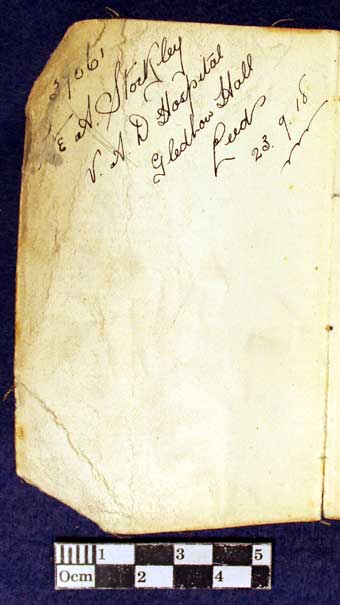 37061
E A Stockley
V. A. D Hospital
Gledhow Hall
Leeds
23. 9. 18.
1 3 5
0cm 2 4